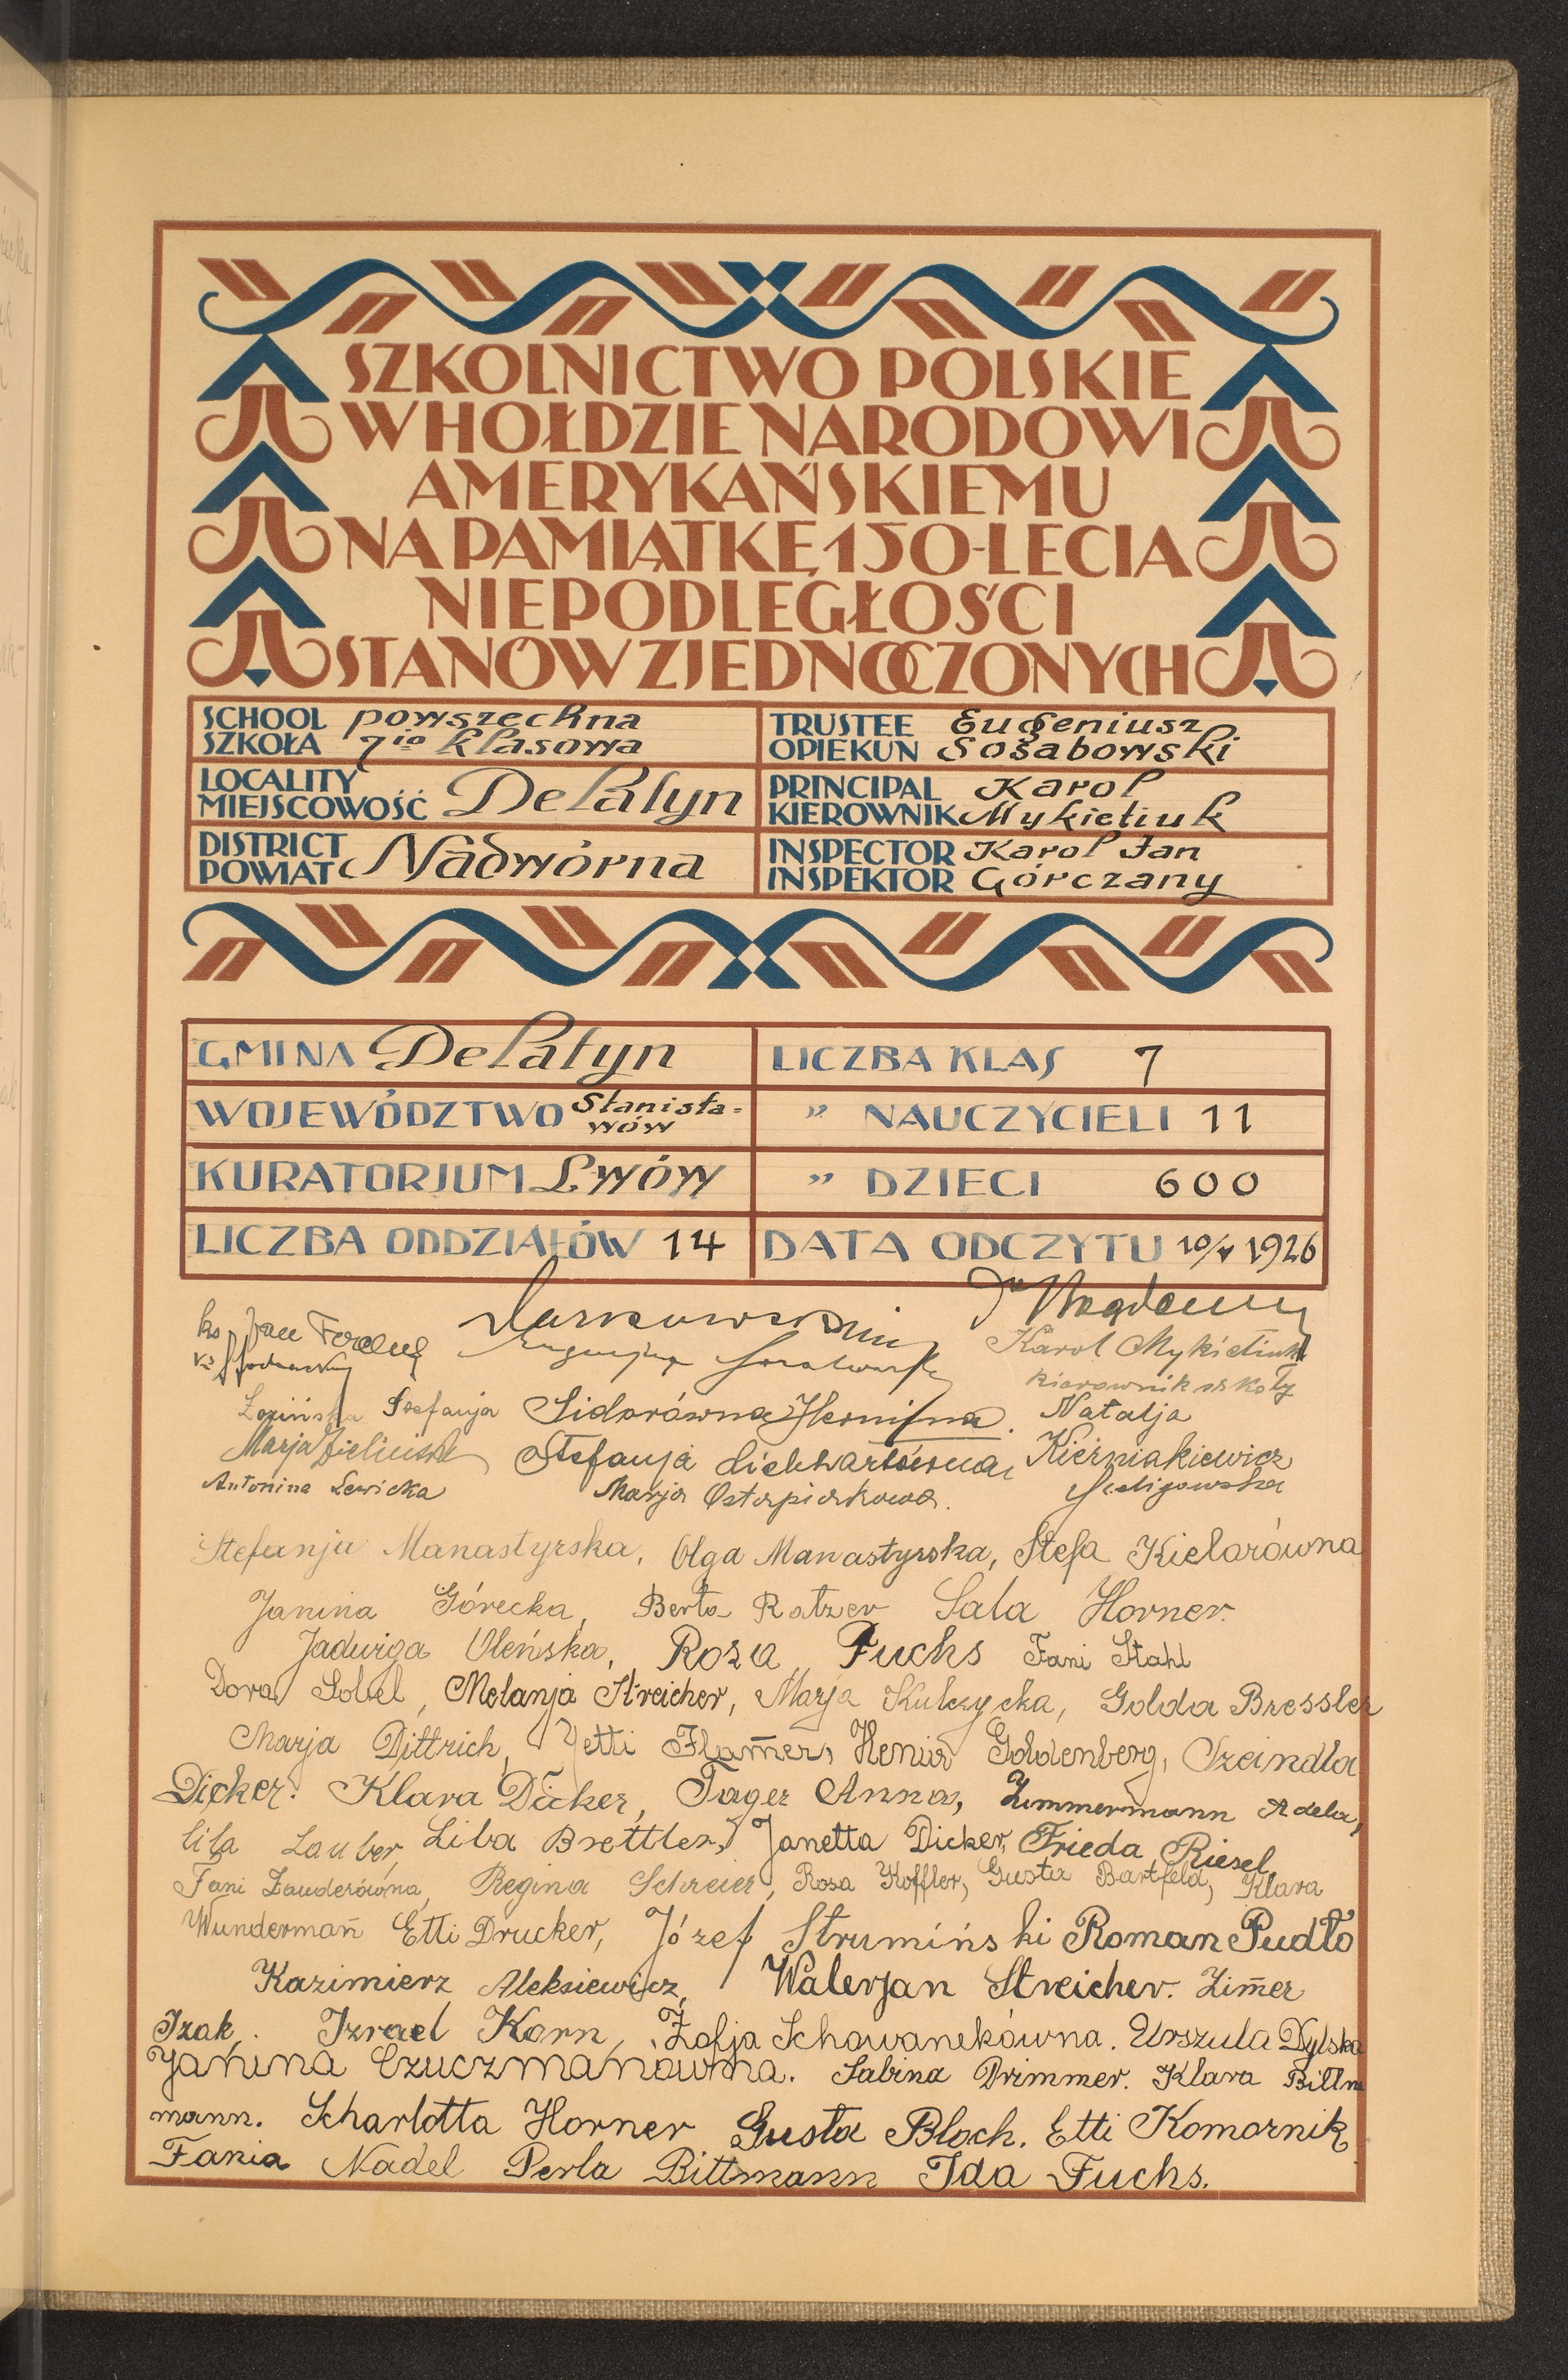 SZKOLNICTWO POLSKIE
W HOŁDZIE NARODOWI
AMERYKAŃSKIEMU
NA PAMIĄTKĘ 150-LECIA
NIEPODLEGŁOŚCI
STANÓW ZJEDNOCZONYCH
SCHOOL SZKOŁA powszechna 7io klasowa
TRUSTEE OPIEKUN Eugeniusz Sosabowski
LOCALITY MIEJSCOWOŚĆ Delatyn
PRINCIPAL KIEROWNIK Karol Mykietiuk
DISTRICT POWIAT Nadwórna
INSPECTOR INSPEKTOR Karol Jan Górczany
GMINA Delatyn
LICZBA KLAS 7
WOJEWÓDZTWO Stanisła-wów
" NAUCZYCIELI 11
KURATORJUM Lwów
" DZIECI 600
LICZBA ODDZIAŁÓW 14
DATA ODCZYTU 10/V 1926
ks Jan
Karol Mykietiuk
kierownik szkoły
Stefanja Sidorówna Hermina. Natalja
Marja Zielińska Stefanja Kierniakiewicz
Antonina Lewicka Marja Ostapiakowa.
Stefanja Manastyrska, Olga Manastyrska, Stefa Kielarówna
Janina Górecka, Berta Ratzer Sala Horner.
Jadwiga Oleńska, Roza Fuchs Fani Stahl
Dora Sobel, Melanja Streicher, Marja Kulczycka, Golda Bressler
Marja Dittrich, Yetti Flam̄er, Henia Goldenberg, Szeindla
Dicker. Klara Dicker, Tager Anna, Zimmermann Adela,
Lila Lauber, Liba Brettler, Janetta Dicker, Frieda Riesel,
Fani Zauderówna, Regina Schreier, Rosa Koffler, Gusta Bartfeld, Klara
Wunderman̄ Etti Drucker, Józef Strumiński Roman Pudło
Kazimierz Aleksiewicz, Walerjan Streicher. Zim̄er
Izak. Izrael Korn, Zofja Schowanekówna. Urszula Dylska
Janina Czuczmanówna. Sabina Drimmer. Klara Bittm
mann. Scharlotta Horner Gusta Bloch. Etti Komornik
Fania Nadel Perla Bittmann Ida Fuchs.